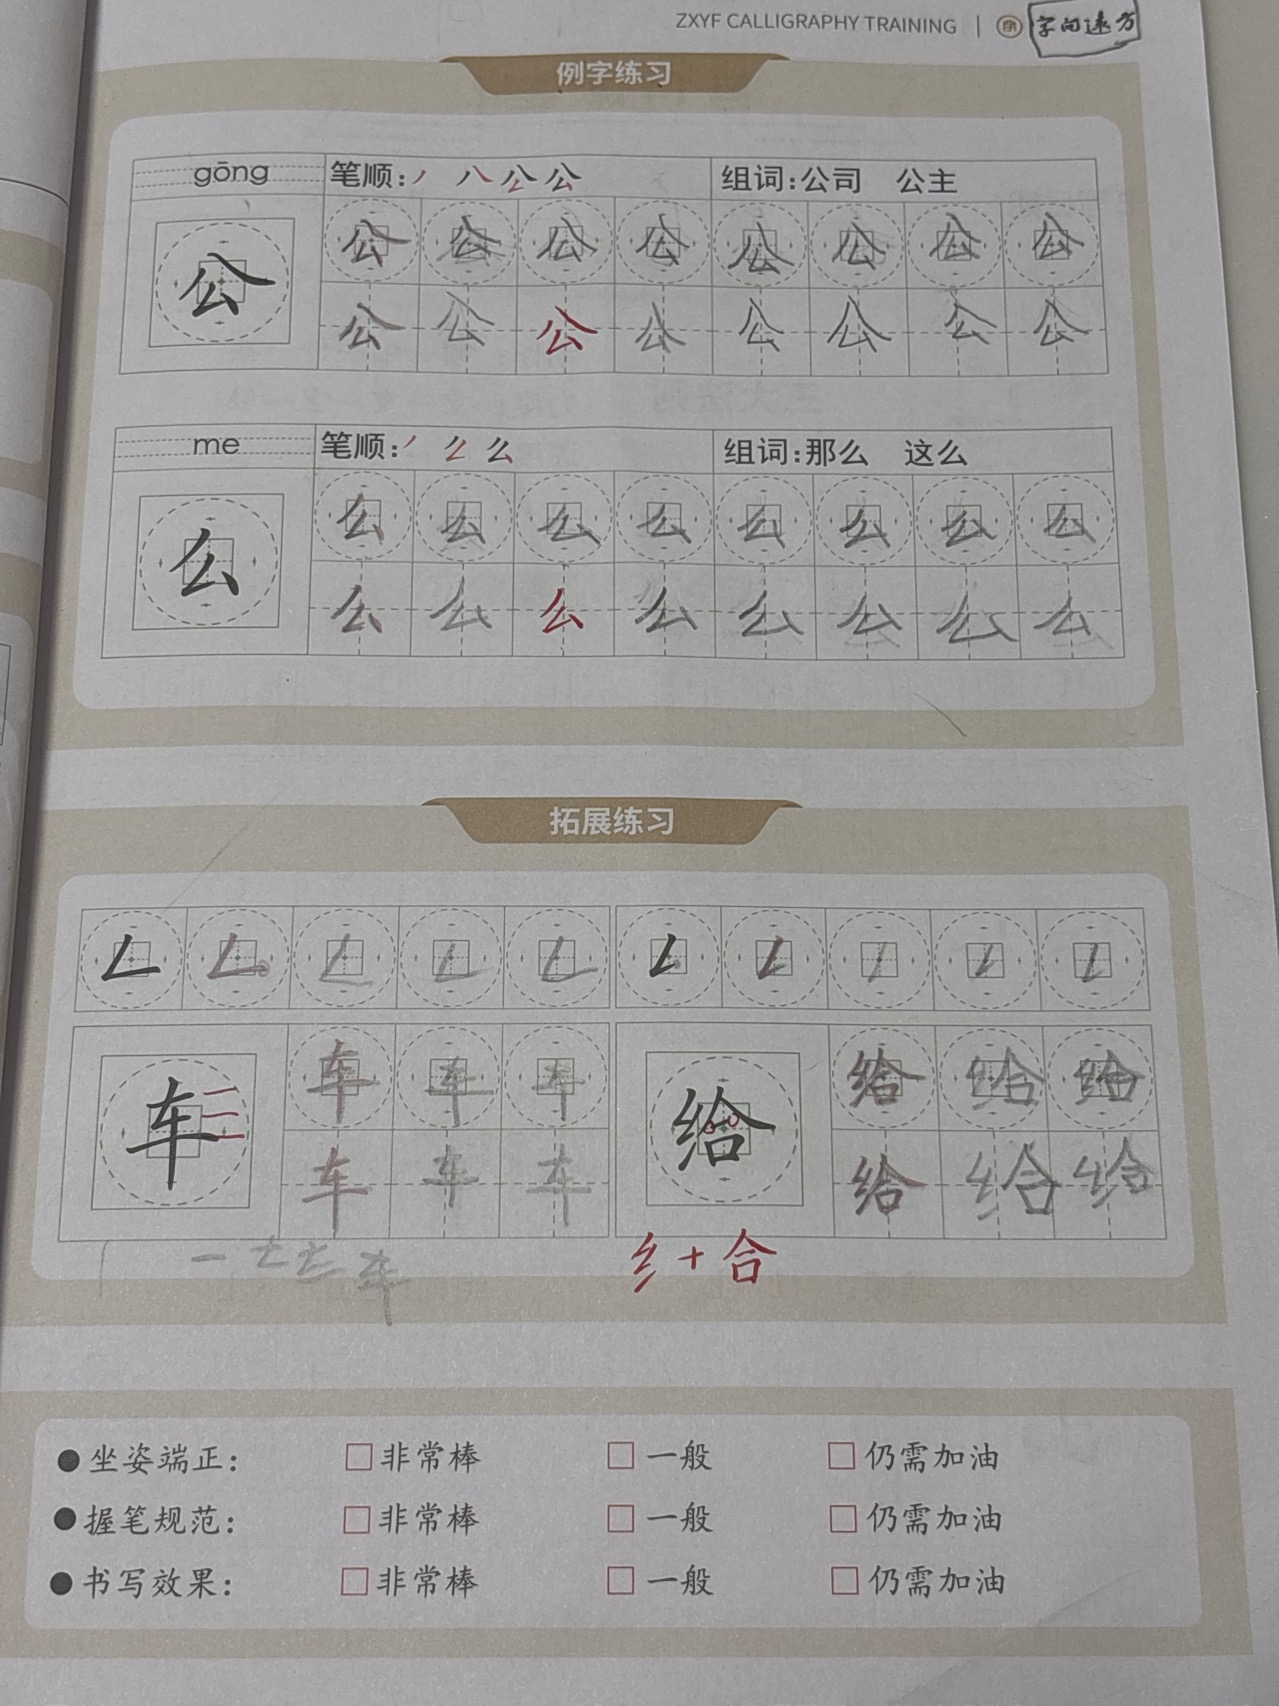 ZXYF CALLIGRAPHY TRAINING | 字向远方
例字练习
gōng 笔顺: 丿 八 公 公 组词:公司 公主
公 公 公 公 公 公 公 公 公
公 公 公 公 公 公 公 公
me 笔顺: 丿 么 么 组词:那么 这么
么 么 么 么 么 么 么 么 么
么 么 么 么 么 么 么 么
拓展练习
车 车 车 车 给 给 给 给
车 车 车 给 给 给
一 车 纟+合
●坐姿端正: □非常棒 □一般 □仍需加油
●握笔规范: □非常棒 □一般 □仍需加油
●书写效果: □非常棒 □一般 □仍需加油